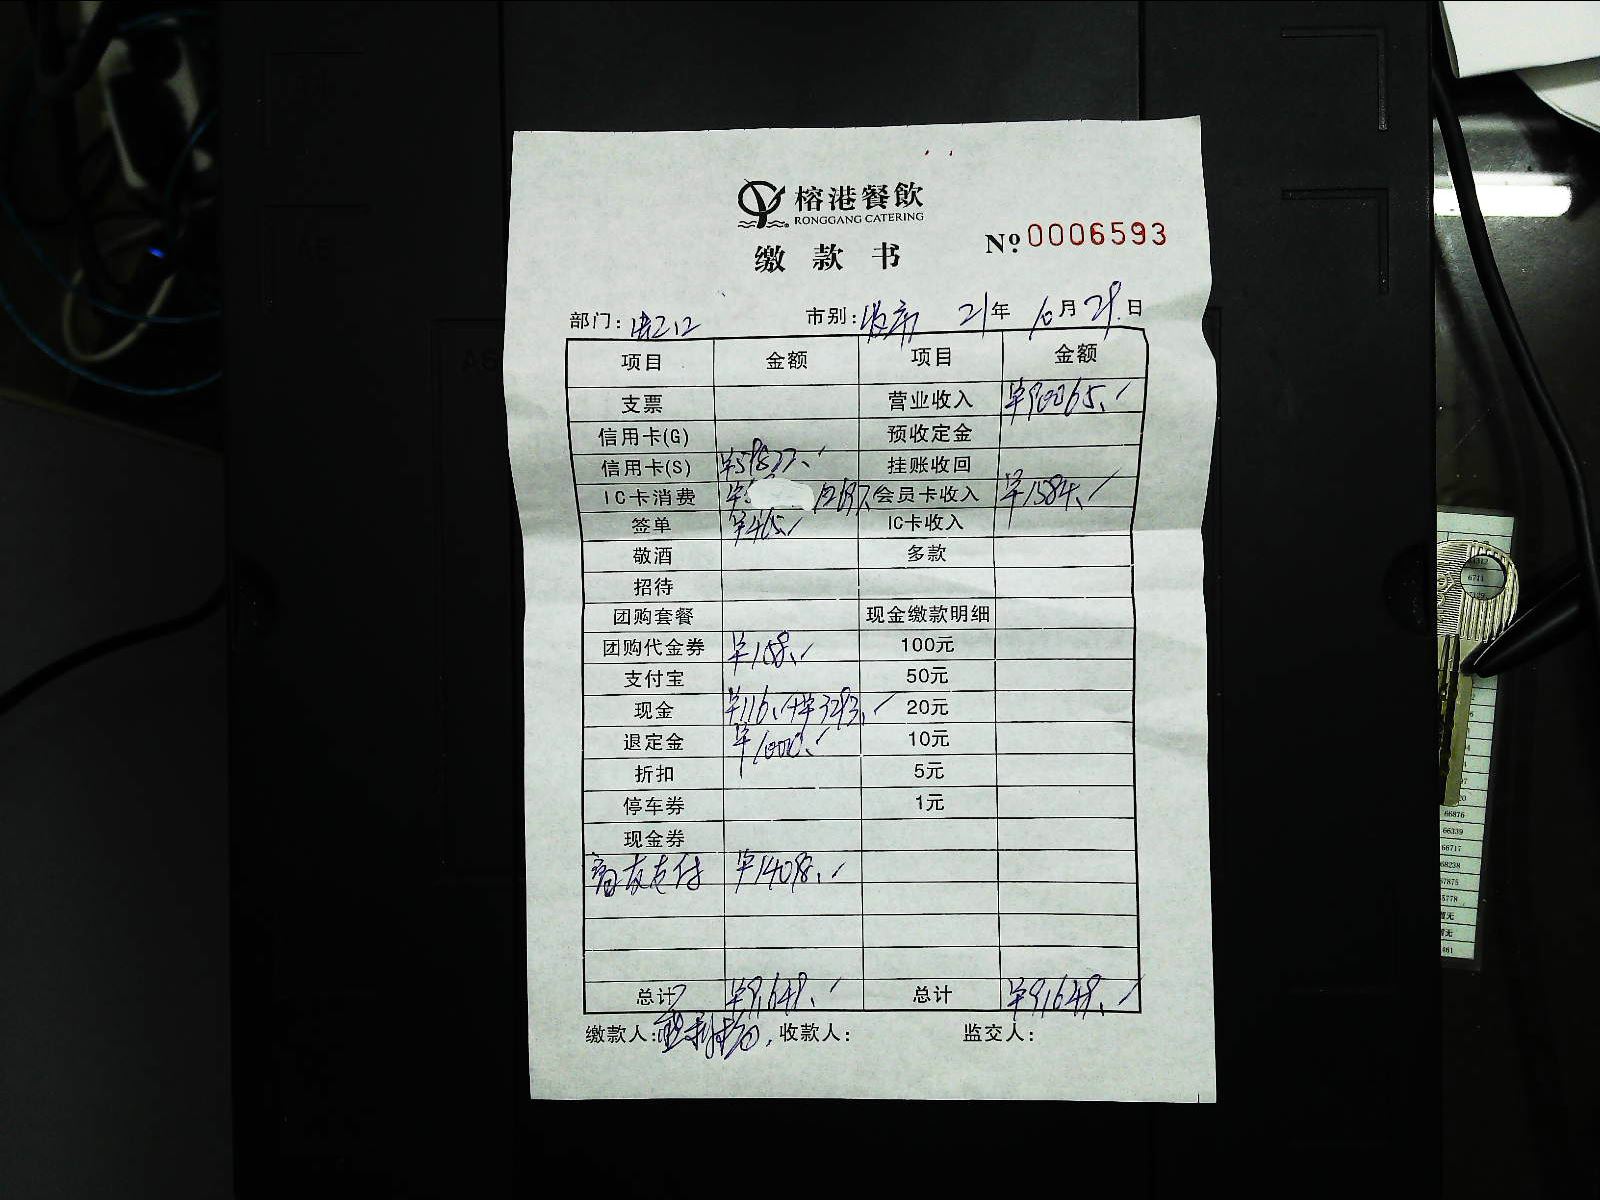 榕港餐飲
RONGGANG CATERING
缴款书 № 0006593
部门: 市别: 21年 10月 29日
项目 金额 项目 金额
支票 营业收入 ¥90065.
信用卡(G) 预收定金
信用卡(S) 挂账收回
IC卡消费 会员卡收入 ¥1584.
签单 ¥465. IC卡收入
敬酒 多款
招待
团购套餐 现金缴款明细
团购代金券 ¥158. 100元
支付宝 50元
现金 ¥116.+¥3293. 20元
退定金 ¥1000. 10元
折扣 5元
停车券 1元
现金券
支付 ¥14098.
总计 ¥91649. 总计 ¥91649.
缴款人: 收款人: 监交人:
6711
66876
66339
66717
68238
67875